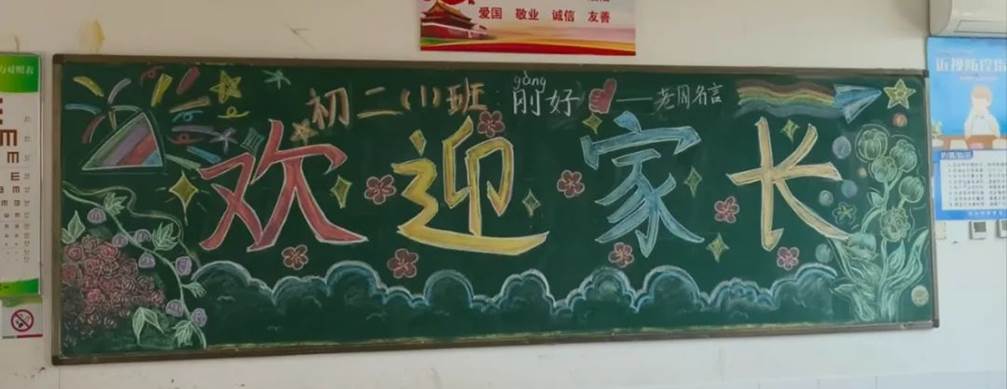 爱国 敬业 诚信 友善
力对照表
近视防控指
初二(1)班 gàng
刚好 ——老周名言
欢迎家长